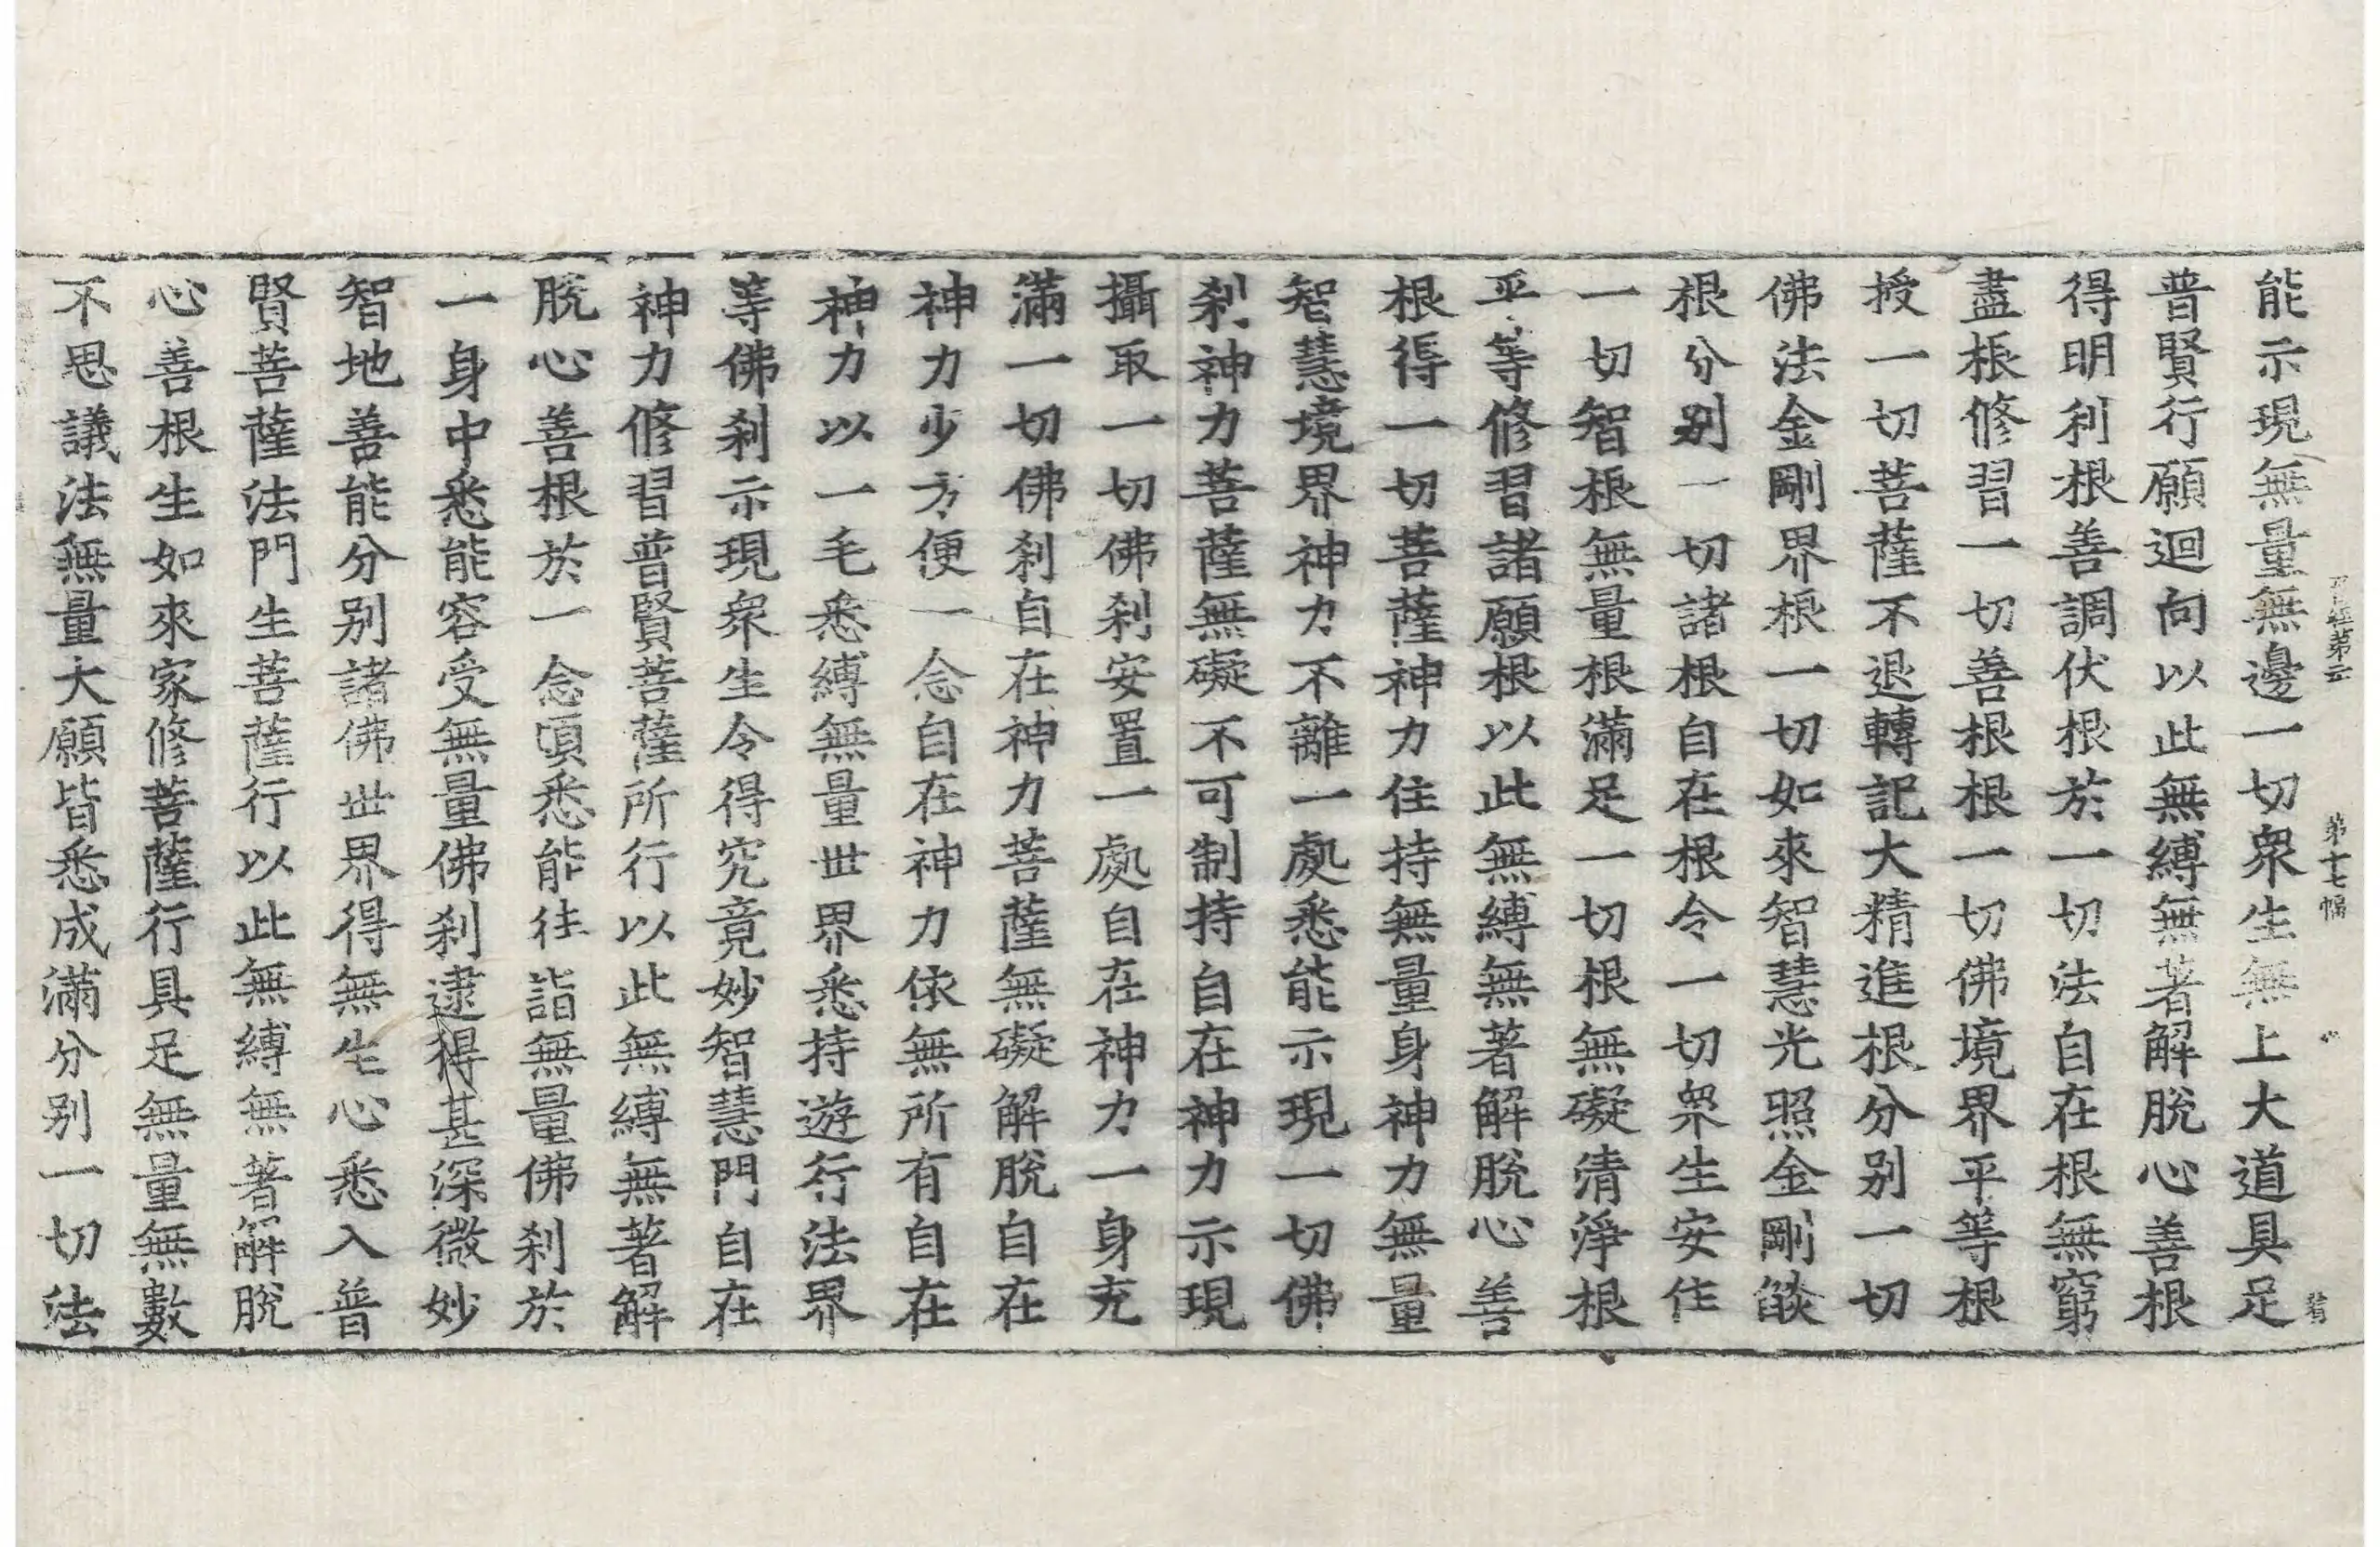 能示現無量無邊一切衆生無上大道具足
普賢行願迴向以此無縛無著解脫心善根
得明利根善調伏根於一切法自在根無窮
盡根修習一切善根根一切佛境界平等根
授一切菩薩不退轉記大精進根分别一切
佛法金剛界根一切如來智慧光照金剛燄
根分别一切諸根自在根令一切衆生安住
一切智根無量根滿足一切根無礙清淨根
平等修習諸願根以此無縛無著解脫心善
根得一切菩薩神力住持無量身神力無量
智慧境界神力不離一處悉能示現一切佛
刹神力菩薩無礙不可制持自在神力示現
攝取一切佛刹安置一處自在神力一身充
滿一切佛刹自在神力菩薩無礙解脫自在
神力少方便一念自在神力依無所有自在
神力以一毛悉縛無量世界悉持遊行法界
等佛刹示現衆生令得究竟妙智慧門自在
神力修習普賢菩薩所行以此無縛無著解
脫心善根於一念頃悉能往詣無量佛刹於
一身中悉能容受無量佛刹逮得甚深微妙
智地善能分别諸佛世界得無生心悉入普
賢菩薩法門生菩薩行以此無縛無著解脫
心善根生如來家修菩薩行具足無量無數
不思議法無量大願皆悉成滿分别一切法